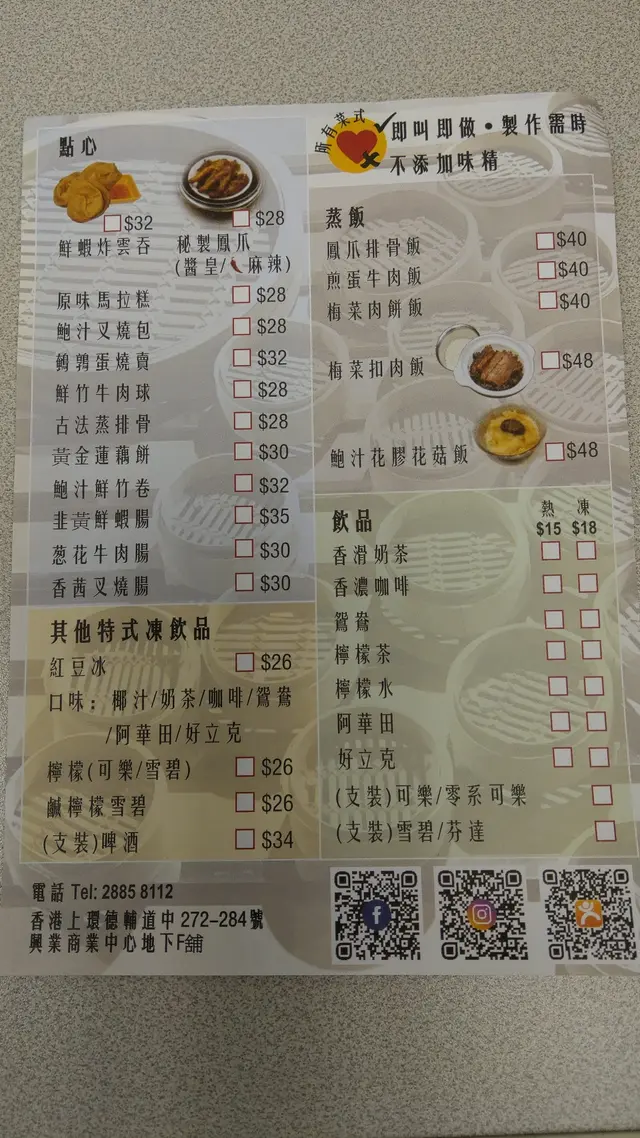 點心
$32
$28
鮮蝦炸雲吞
秘製鳳爪
(醬皇/麻辣)
原味馬拉糕 $28
鮑汁叉燒包 $28
鵪鶉蛋燒賣 $32
鮮竹牛肉球 $28
古法蒸排骨 $28
黃金蓮藕餅 $30
鮑汁鮮竹卷 $32
韭黃鮮蝦腸 $35
葱花牛肉腸 $30
香茜叉燒腸 $30
其他特式凍飲品
紅豆冰 $26
口味：椰汁/奶茶/咖啡/鴛鴦
/阿華田/好立克
檸檬(可樂/雪碧) $26
鹹檸檬雪碧 $26
(支裝)啤酒 $34
所有菜式
即叫即做•製作需時
不添加味精
蒸飯
鳳爪排骨飯 $40
煎蛋牛肉飯 $40
梅菜肉餅飯 $40
梅菜扣肉飯 $48
鮑汁花膠花菇飯 $48
飲品
熱 凍
$15 $18
香滑奶茶
香濃咖啡
鴛鴦
檸檬茶
檸檬水
阿華田
好立克
(支裝)可樂/零系可樂
(支裝)雪碧/芬達
電話 Tel: 2885 8112
香港上環德輔道中272-284號
興業商業中心地下F舖